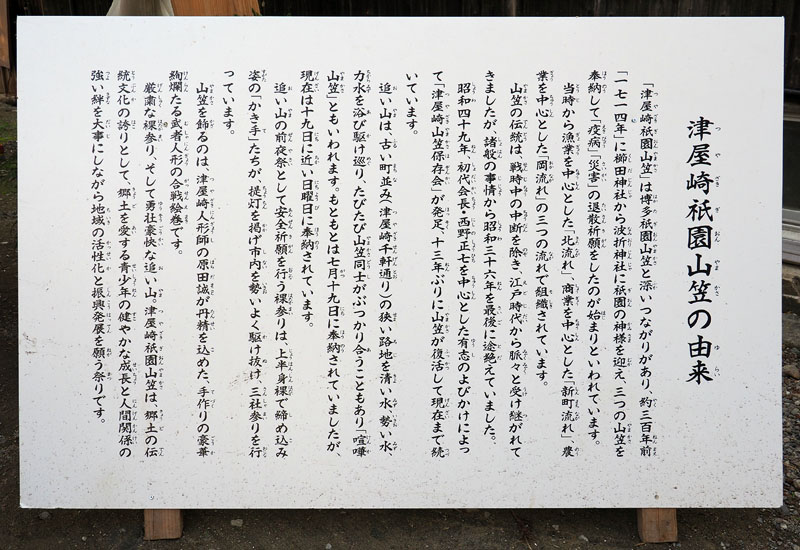 津屋崎祇園山笠の由来
「津屋崎祇園山笠」は博多祇園山笠と深いつながりがあり、約三百年前
「一七一四年」に櫛田神社から波折神社に祇園の神様を迎え、三つの山笠を
奉納して「疫病」「災害」の退散祈願をしたのが始まりといわれています。
当時から漁業を中心とした「北流れ」、商業を中心とした「新町流れ」、農
業を中心とした「岡流れ」の三つの流れで組織されています。
山笠の伝統は、戦時中の中断を除き、江戸時代から脈々と受け継がれて
きましたが、諸般の事情から昭和三十六年を最後に途絶えていました。
昭和四十九年、初代会長・西野正七を中心とした有志のよびかけによっ
て「津屋崎山笠保存会」が発足、十三年ぶりに山笠が復活して現在まで続
いています。
追い山は、古い町並み（津屋崎千軒通り）の狭い路地を清い水、勢い水、
力水を浴び駆け巡り、たびたび山笠同士がぶつかり合うこともあり「喧嘩
山笠」ともいわれます。もともとは七月十九日に奉納されていましたが、
現在は十九日に近い日曜日に奉納されています。
追い山の前夜祭として安全祈願を行う裸参りは、上半身裸で締め込み
姿の「かき手」たちが、提灯を掲げ市内を勢いよく駆け抜け、三社参りを行
っています。
山笠を飾るのは、津屋崎人形師の原田誠が丹精を込めた、手作りの豪華
絢爛たる武者人形の合戦絵巻です。
厳粛な裸参り、そして勇壮豪快な追い山、津屋崎祇園山笠は、郷土の伝
統文化の誇りとして、郷土を愛する青少年の健やかな成長と人間関係の
強い絆を大事にしながら地域の活性化と振興発展を願う祭りです。